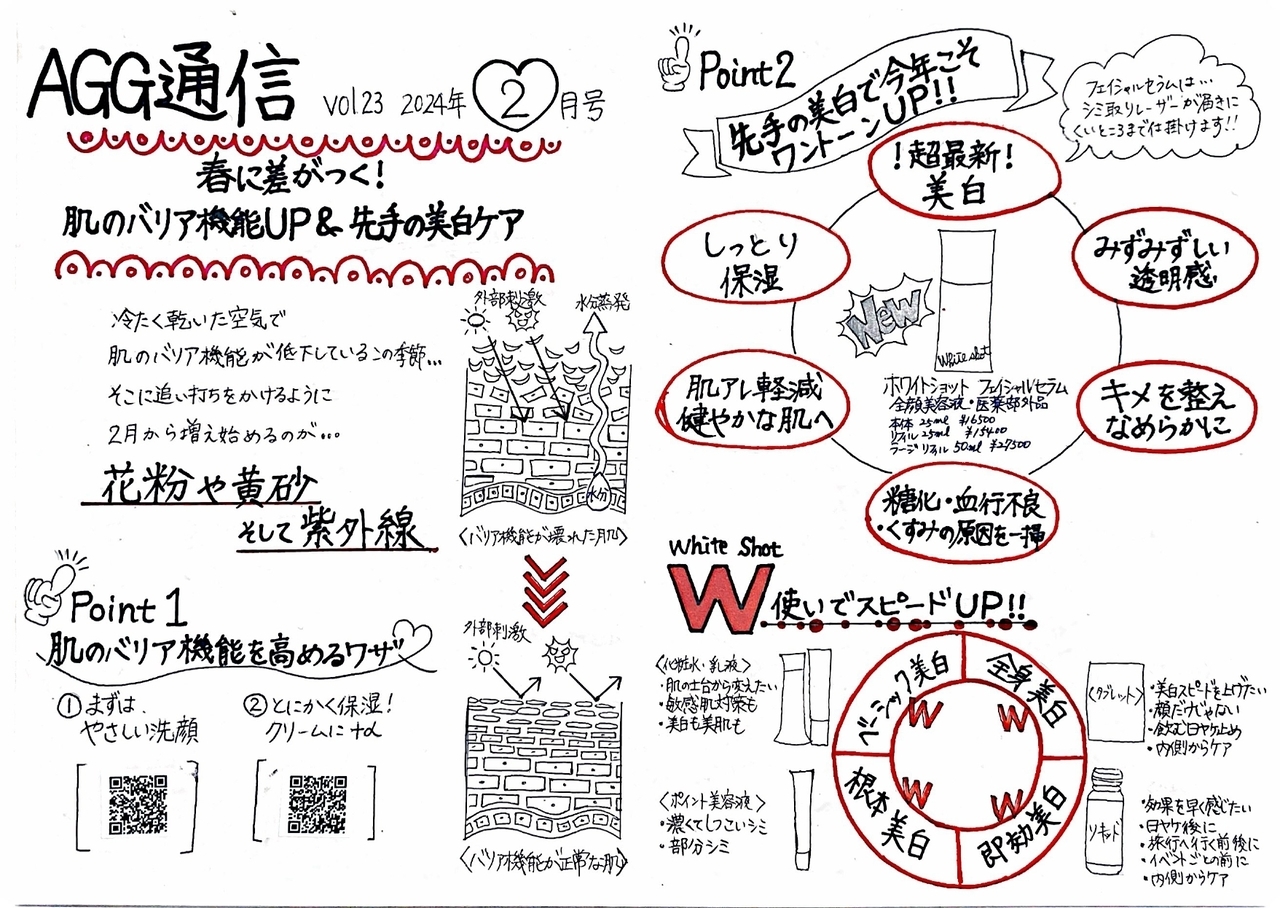 AGG通信 vol.23 2024年 2月号
春に差がつく!
肌のバリア機能UP&先手の美白ケア
冷たく乾いた空気で
肌のバリア機能が低下しているこの季節...
そこに追い打ちをかけるように
2月から増え始めるのが...
花粉や黄砂
そして紫外線
外部刺激
水分蒸発
水分
〈バリア機能が壊れた肌〉
Point 1
肌のバリア機能を高めるワザ
①まずは、
やさしい洗顔
②とにかく保湿!
クリームに+α
外部刺激
〈バリア機能が正常な肌〉
Point2
先手の美白で今年こそ
ワントーンUP!!
フェイシャルセラムは...
シミ取りレーザーが届きに
くいところまで仕掛けます!!
!超最新!
美白
しっとり
保湿
みずみずしい
透明感
肌アレ軽減
健やかな肌へ
キメを整え
なめらかに
糖化・血行不良
・くすみの原因を一掃
New
White shot
ホワイトショット フェイシャルセラム
全顔美容液・医薬部外品
本体 25ml ¥16500
リフィル 25ml ¥15400
ラージリフィル 50ml ¥27500
White Shot
W使いでスピードUP!!
〈化粧水・乳液〉
・肌の土台から変えたい
・敏感肌対策も
・美白も美肌も
ベーシック美白
W
全身美白
W
〈タブレット〉
・美白スピードを上げたい
・顔だけじゃない
・飲む日ヤケ止め
・内側からケア
〈ポイント美容液〉
・濃くてしつこいシミ
・部分シミ
根本美白
W
即効美白
W
リキッド
・効果を早く感じたい
・日ヤケ後に
・旅行へ行く前後に
・イベントごとの前に
・内側からケア